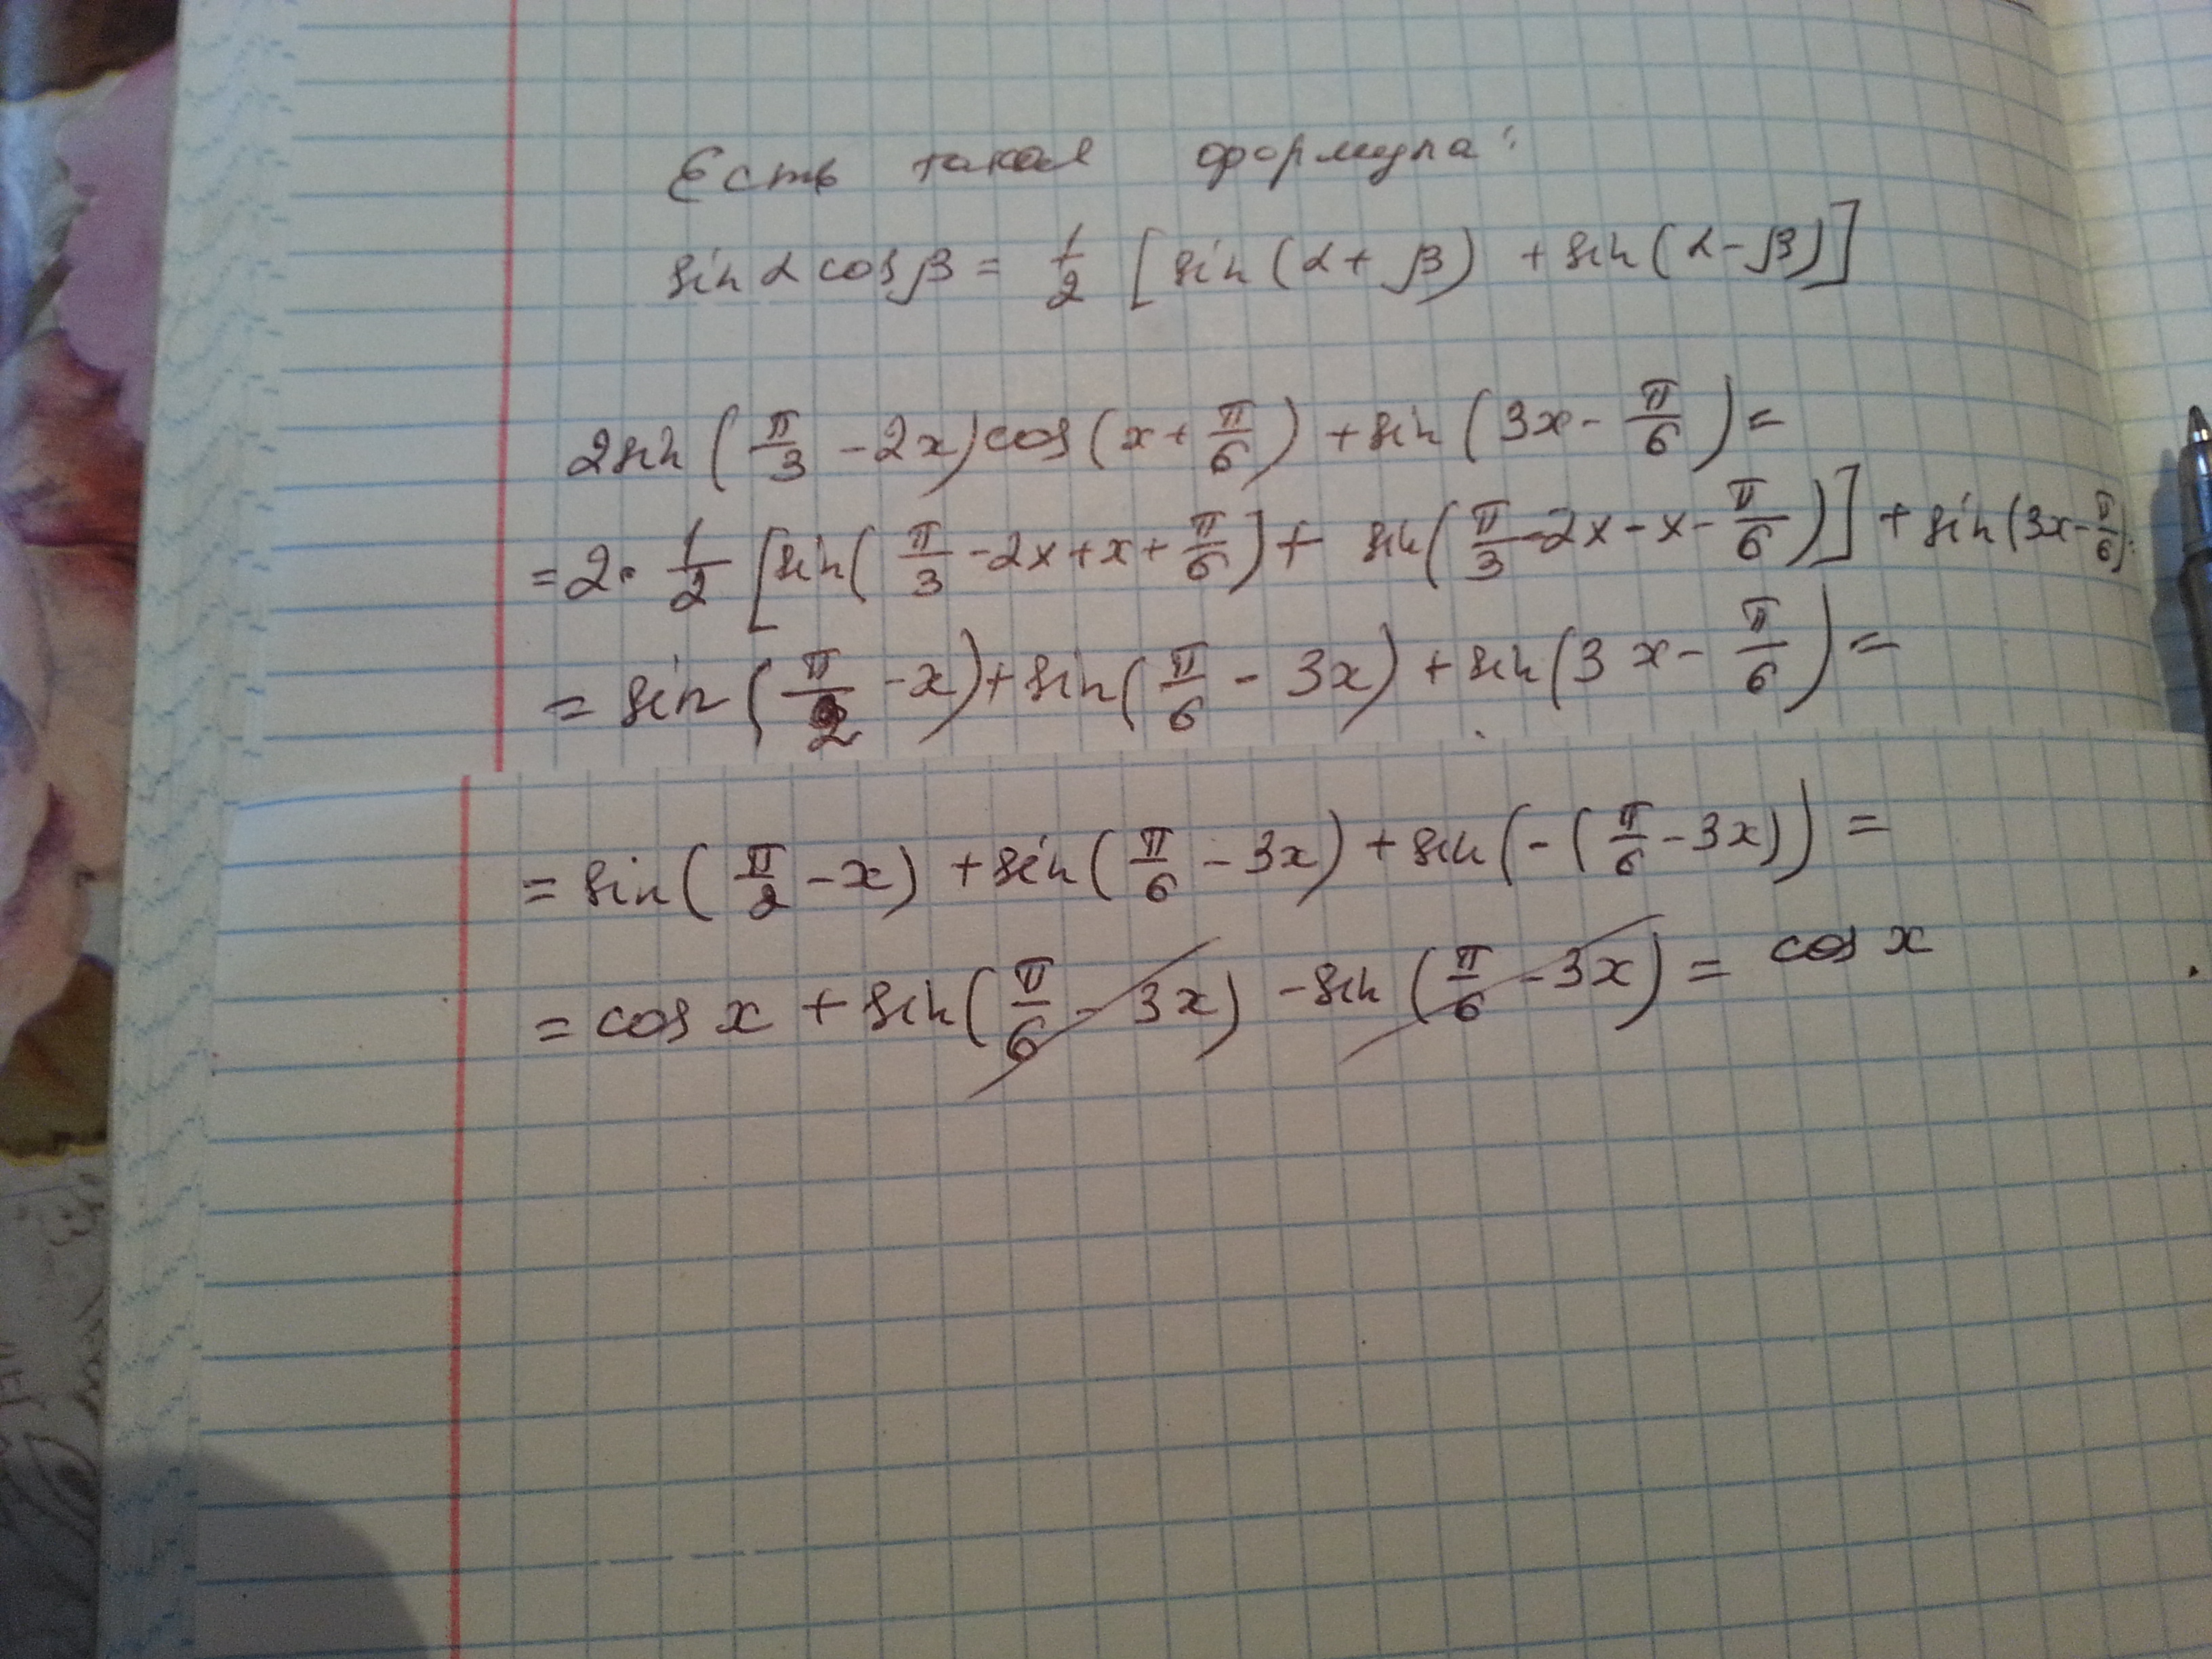 Есть такая формула:
sin α cos β = 1/2 [sin (α + β) + sin (α - β)]
2 sin (π/3 - 2x) cos (x + π/6) + sin (3x - π/6) =
= 2 · 1/2 [sin( π/3 - 2x + x + π/6 ] + sin( π/3 - 2x - x - π/6 )] + sin (3x - π/6)
= sin (π/2 - x) + sin (π/6 - 3x) + sin (3x - π/6) =
= sin (π/2 - x) + sin (π/6 - 3x) + sin (- (π/6 - 3x)) =
= cos x + sin (π/6 - 3x) - sin (π/6 - 3x) = cos x